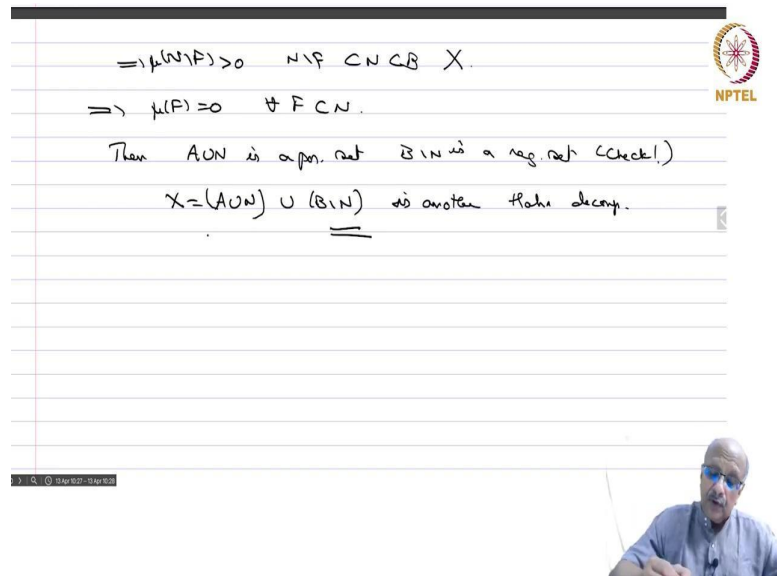 ⇒ μ(N\F) > 0   N\F ⊂ N ⊂ B  X.
⇒ μ(F) = 0   ∀ F ⊂ N.
Then A∪N is a pos. set   B\N is a neg. set (Check!)
X = (A∪N) ∪ (B\N) is another Hahn decomp.
NPTEL
13 Apr 10:27 - 13 Apr 10:28